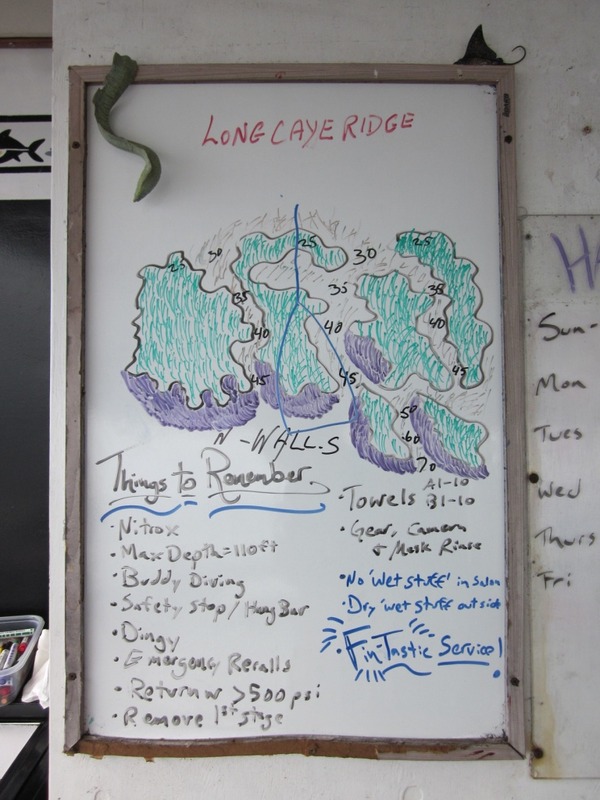 LONG CAYE RIDGE
25 30 25 30 25
35 35 35
40 40 40
45 45 45
50
60
70
N - WALL - S
Things to Remember
· Nitrox
· Max Depth = 110 ft
· Buddy Diving
· Safety stop / Hang Bar
· Dingy
· Emergency Recalls
· Return w >500 psi
· Remove 1st stage
· Towels A1-10
B1-10
· Gear, Camera
+ Mask Rinse
· No 'wet stuff' in salon
· Dry 'wet stuff outside
Fin-Tastic Service!
Sun-
Mon
Tues
Wed
Thurs
Fri